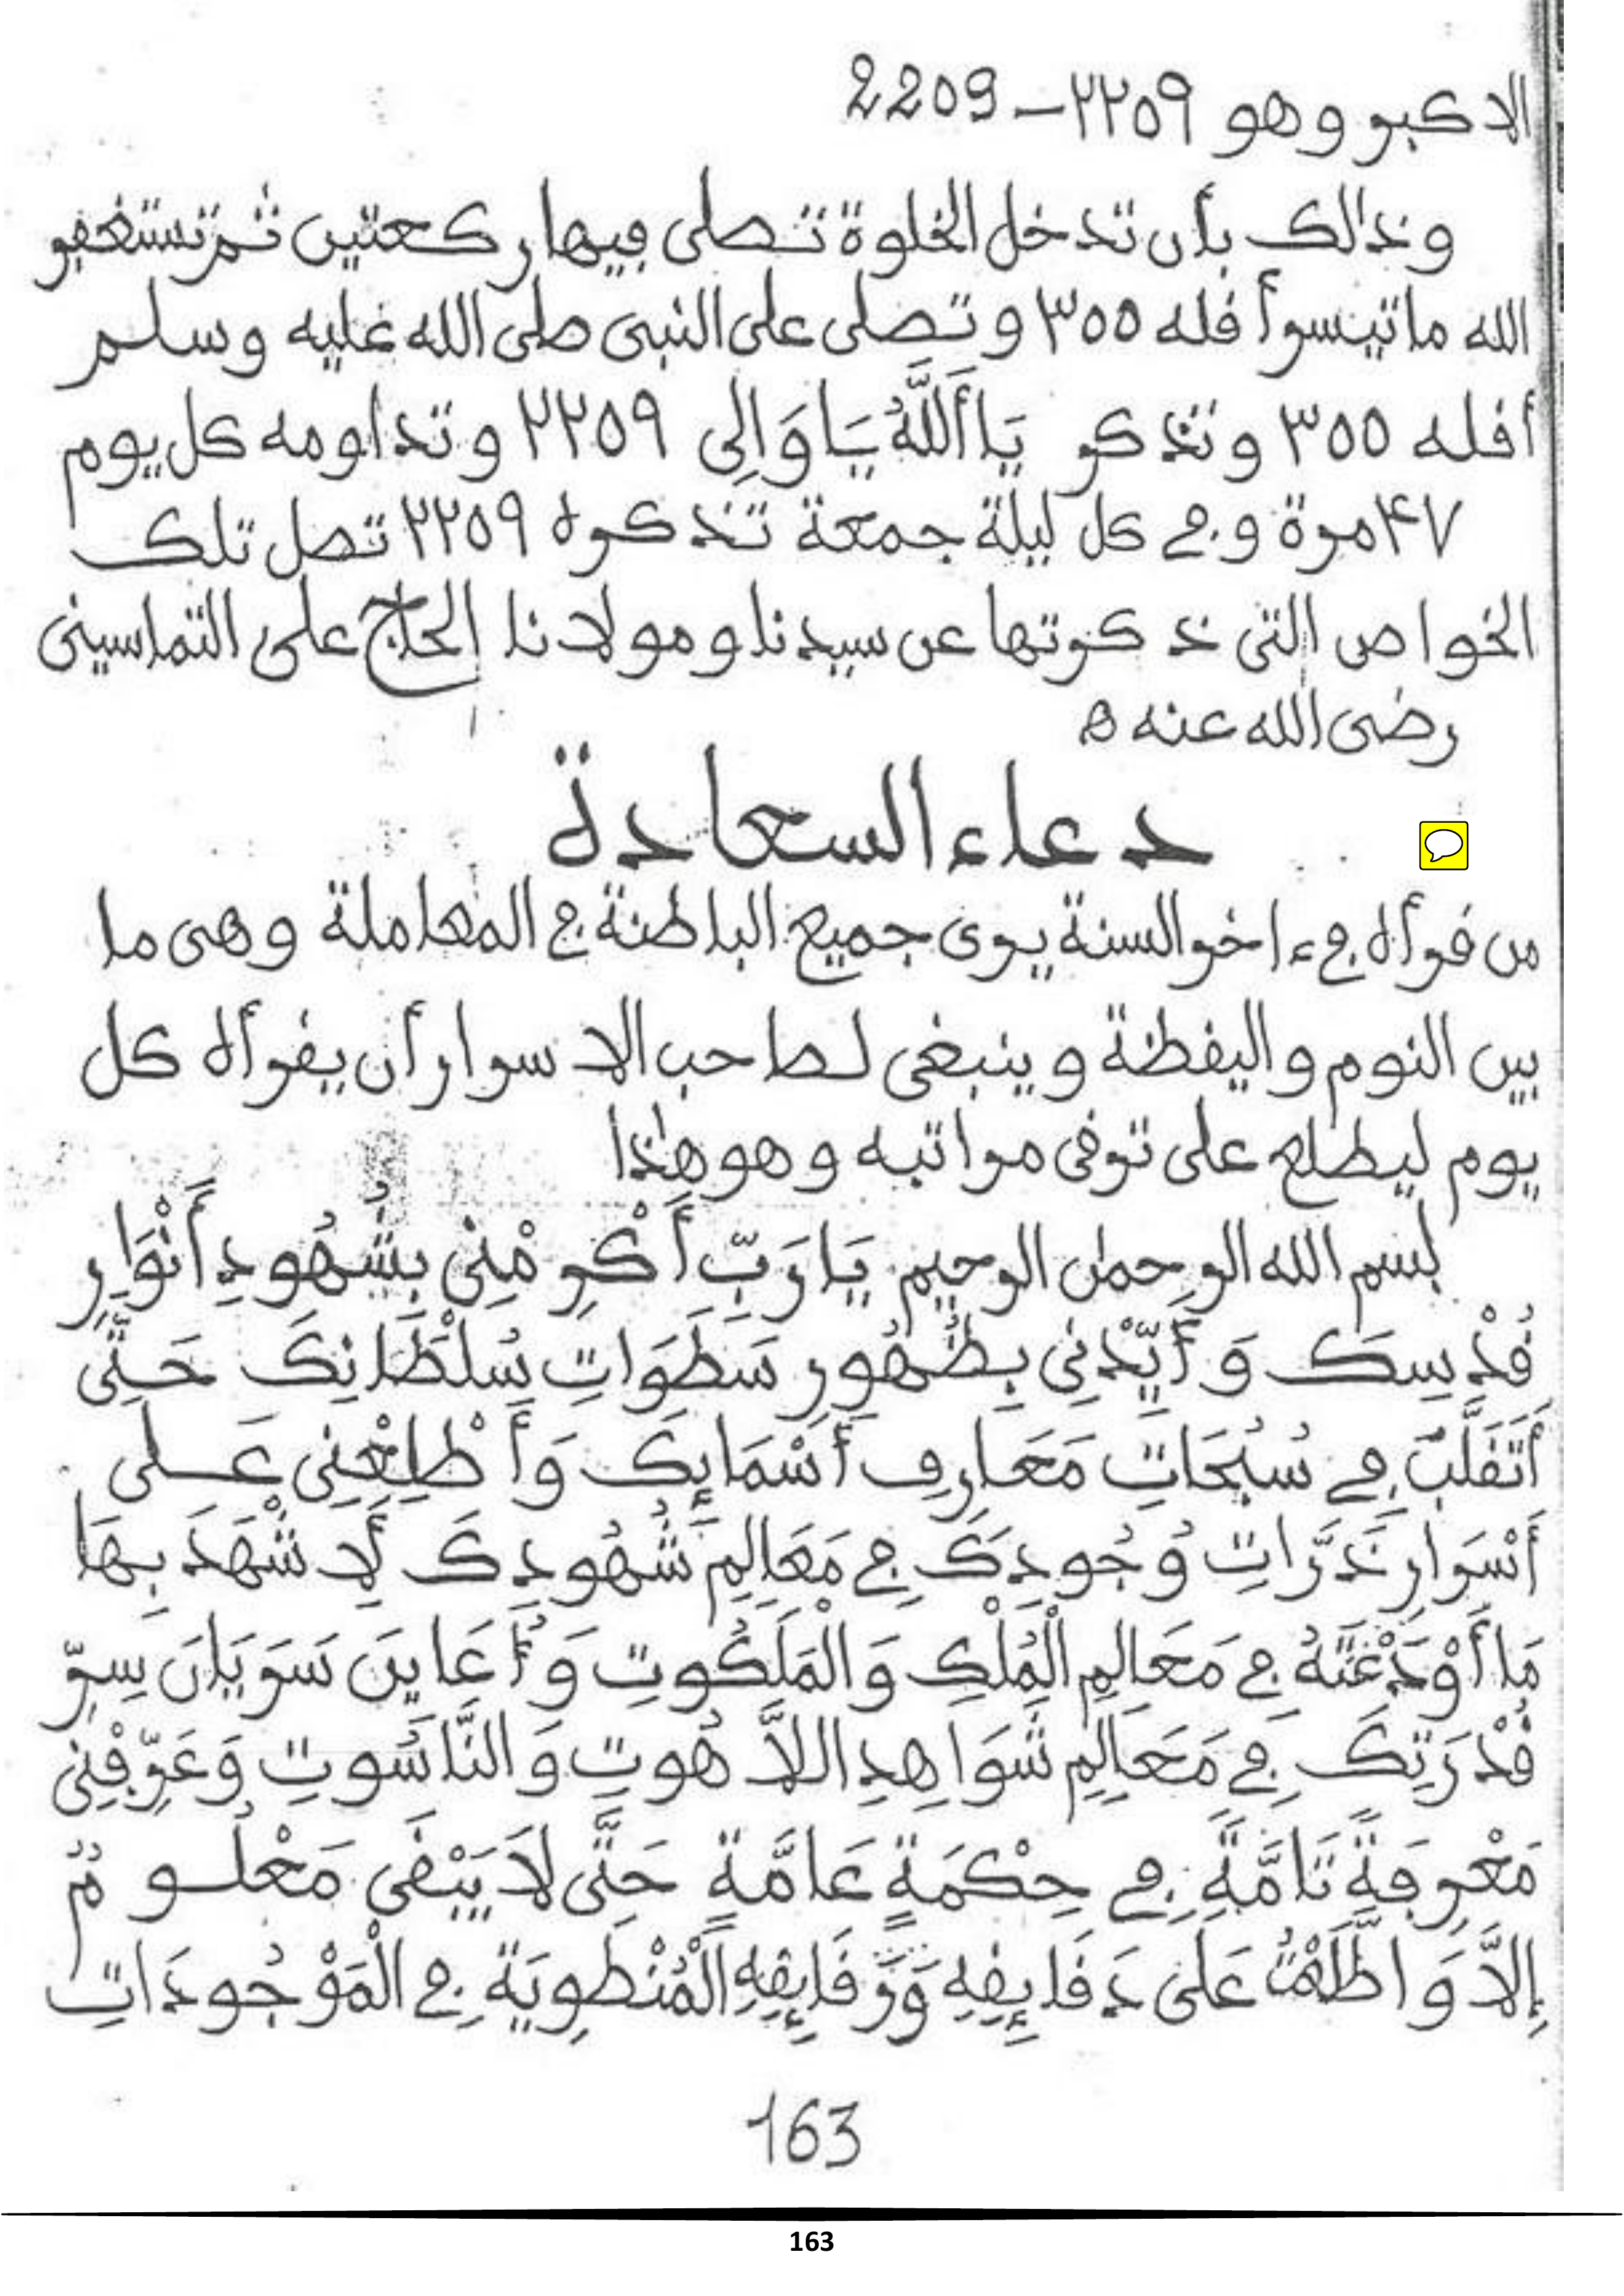 الاكبر وهو ٢٢٥٩ - 2209
وذالك بأن تدخل الخلوة تصلى فيها ركعتين ثم تستغفر
الله ما تيسر أقله ٣٥٥ وتصلى على النبى صلى الله عليه وسلم
أقله ٣٥٥ وتذكر يَا أَللَّهُ يَا وَالِى ٢٢٥٩ وتداومه كل يوم
٤٧ مرة وفى كل ليلة جمعة تذكره ٢٢٥٩ تصل تلك
الخواص التى ذكرتها عن سيدنا ومولانا الحاج على التماسينى
رضى الله عنه ه
دعاء السعادة
من قرأه فى ءاخر السنة يرى جميع الباطنة فى المعاملة وهى ما
بين النوم واليقظة وينبغى لصاحب الاسرار أن يقرأه كل
يوم ليطلع على ترقى مراتبه وهو هٰذا
بسم الله الرحمٰن الرحيم يَا رَبِّ أَكْرِمْنِى بِشُهُودِ أَنْوَارِ
قُدْسِكَ وَأَيِّدْنِى بِظُهُورِ سَطَوَاتِ سُلْطَانِكَ حَتَّى
أَتَقَلَّبَ فِى سُبُحَاتِ مَعَارِفِ أَسْمَائِكَ وَأَطْلِعْنِى عَلى
أَسْرَارِ ذَرَّاتِ وُجُودِكَ فِى مَعَالِمِ شُهُودِكَ لِأَشْهَدَ بِهَا
مَا أَوْدَعْتَهُ فِى مَعَالِمِ الْمُلْكِ وَالْمَلَكُوتِ وَأُعَايِنَ سَرَيَانَ سِرِّ
قُدْرَتِكَ فِى مَعَالِمِ شَوَاهِدِ اللاَّهُوتِ وَالنَّاسُوتِ وَعَرِّفْنِى
مَعْرِفَةً تَامَّةً فِى حِكْمَةٍ عَامَّةٍ حَتَّى لاَ يَبْقَى مَعْلُومٌ
إِلاَّ وَاطَّلَعْتُ عَلَى دَقَائِقِهِ وَرَقَائِقِهِ الْمُنْطَوِيَةِ فِى الْمَوْجُودَاتِ
163
163